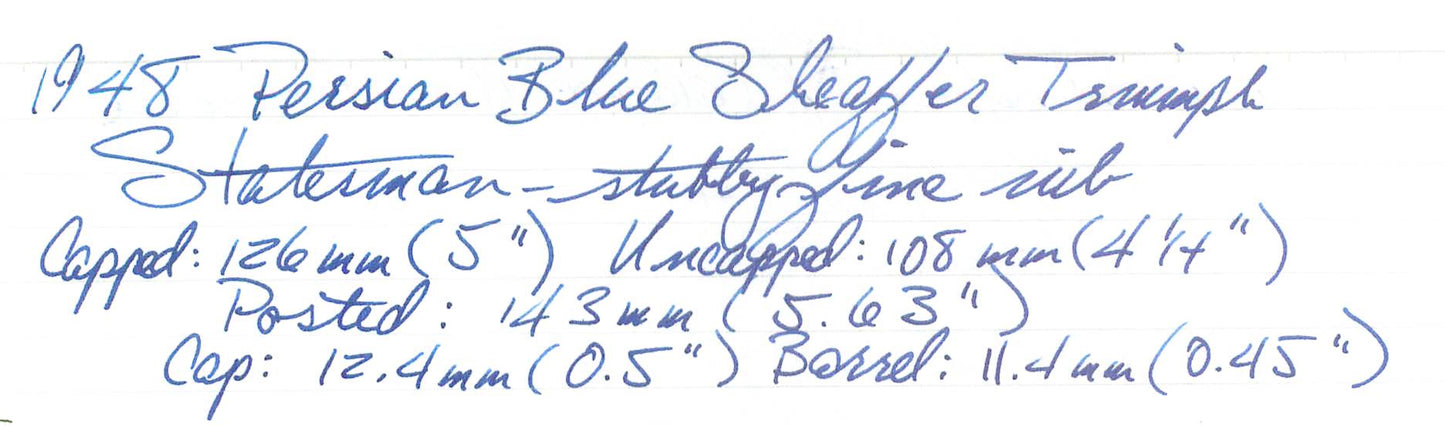 1948 Persian Blue Sheaffer Triumph
Statesman - stubby fine nib
Capped: 126 mm (5") Uncapped: 108 mm (4 1/4")
Posted: 143 mm (5.63")
Cap: 12.4 mm (0.5") Barrel: 11.4 mm (0.45")